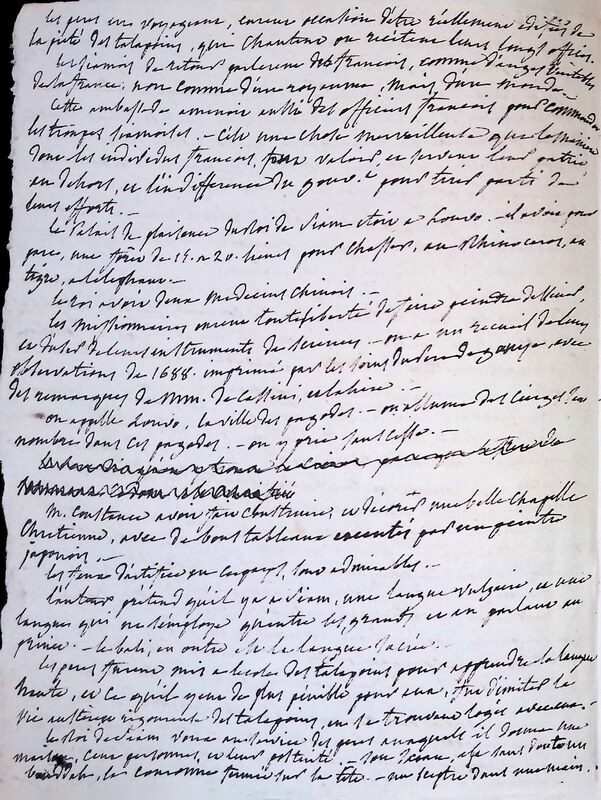 les peres en voyageant, eurent occasion d'être réellement édifiés de
la piété des talapoins, qui chantent ou recitent leurs longs offices.
les siamois de retour parlerent des francois, comme d'anges
de la france, non comme d'un royaume, mais d'un monde.
Cette ambassade amenoit aussi des officiers francois pour commander
les troupes siamoises. – C'est une chose merveilleuse que la maniere
dont les individus francois, font valoir, et servent leur patrie
au dehors, et l'indifference du gouv.t pour tirer parti de
leurs efforts. –
le Palais de plaisance du Roi de siam étoit à Louvo. – il avoit pour
parc, une forêt de 15. a 20. lieues pour chasser, au Rhinoceros, au
tigre, a l'elephant. –
le roi avoit deux medecins chinois. –
les missionnaires eurent toute liberté de faire
et d'user de leurs instruments de sciences. – on a un recueil de leurs
observations de 1688. imprimé par les soins du pere de gouye, avec
des remarques de Mm. de Cassini, et la hire. –
on appelle Louvo, la ville des pagodes. – on allume des cierges
nombre dans ces pagodes. – on y prie sans cesse. –
M. Constance avoit fait construire, et décorer une belle chapelle
Chretienne, avec de bons tableaux executés par un peintre
japonois. –
les feux d'artifice en ce pays, sont admirables. –
l'auteur pretend qu'il y a a siam, une langue vulgaire, et une
langue qui ne s'employe qu'entre les grands et en parlant au
prince. – le bali, en outre est la langue sacrée. –
les peres furent mis a l'ecole des talapoins pour apprendre la langue
haute, et ce qu'il y eut de plus penible pour eux, fut d'imiter la
vie austere et rigoureuse des talapoins, en se trouvant logés avec eux. –
le Roi de siam voua au service des peres auxquels il donna une
maison, cent personnes, et leur posterité. – son trone, a sans doute un
la couronne fermée sur la tête. – un sceptre dans une main. –